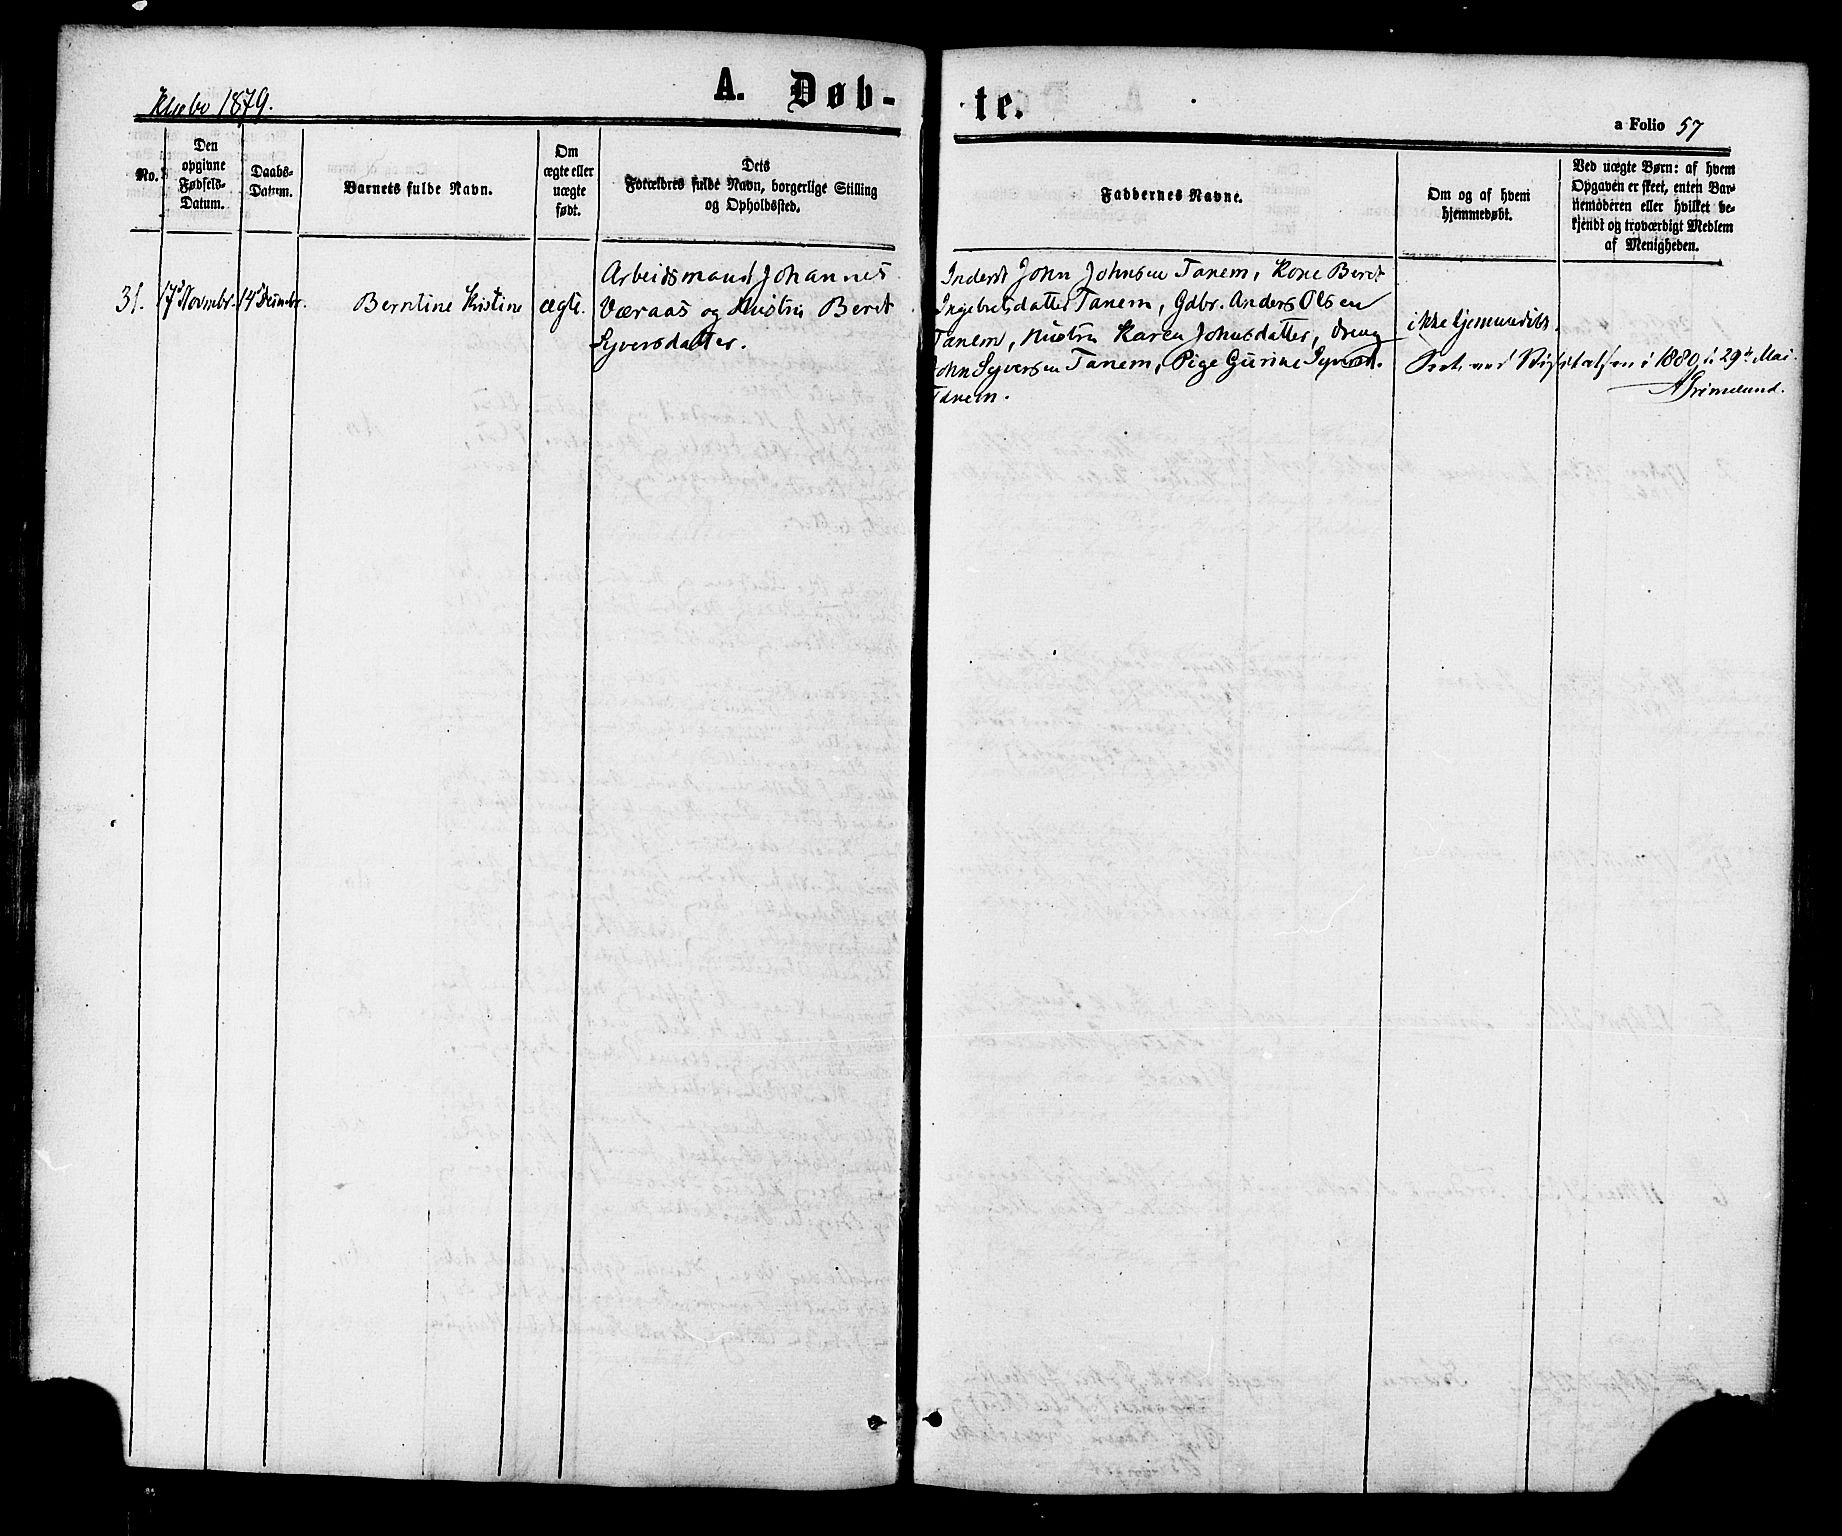 Klæbo 1879.
A. Døb-
te.
a Folio 57
No.
Den
opgivne
Fødsels-
Datum.
Daabs-
Datum.
Barnets fulde Navn.
Om
ægte eller
uægte
født.
Dets
Forældres fulde Navn, borgerlige Stilling
og Opholdssted.
Faddernes Navne.
Om og af hvem
hjemmedøbt.
Ved uægte Børn: af hvem
Opgaven er skeet, enten Bar-
nemoderen eller hvilket be-
kjendt og troværdigt Medlem
af Menigheden.
31.
17de Novmbr.
14de Decmbr.
Berntine Kistine
ægte.
Arbeidsmand Johannes
Væraas og Hustru Beret
Syversdatter.
Inderst John Johnsen Tanem, Kone Beret
Ingebrtsdatter Tanem, Gdbr. Anders Olsen
Tanem, Hustru Karen Johnsdatter, Dreng
John Syversen Tanem, Pige Gurine Syversd.
Tanem.
ikke hjemmedøbt.
Seet ved Visitatsen i 1880 d. 29de Mai.
AGrimelund.